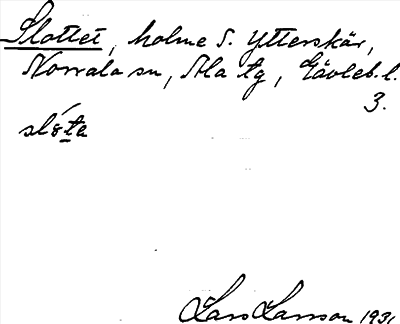 Slottet, holme S. Ytterskär,
Norrala sn, Ala tg, Gävleb. l.
3.
slóta
Lars Larsson 1931